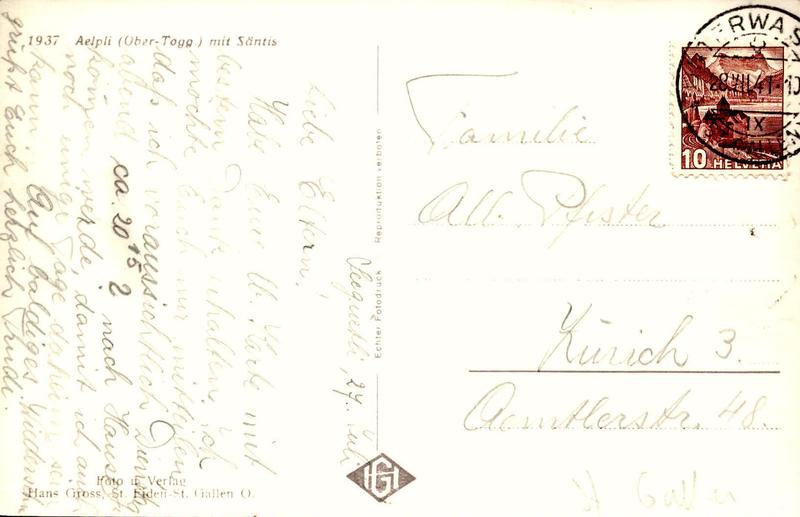 1937 Aelpli (Ober-Togg.) mit Säntis
Seeguetli, 27. Juli
Liebe Eltern!
Habe Eure lb. Karte mit
bestem Dank erhalten. Ich
möchte Euch nur mitteilen
daß ich voraussichtlich Dienstag
abend ca. 20 15 nach Hause
können werde, damit ich auch
noch einige Tage daheim sein
kann. Auf baldiges Wiedersehn
grüßt Euch herzlich Trudi.
Foto u. Verlag
Hans Gross, St. Fiden-St. Gallen O.
Echter Fotodruck Reproduktion verboten
HG
Familie
Alb. Pfister
Zürich 3.
Aemtlerstr. 48.
St Gallen
TERWAS
28.VII.41-10
IX
10 HELVETIA